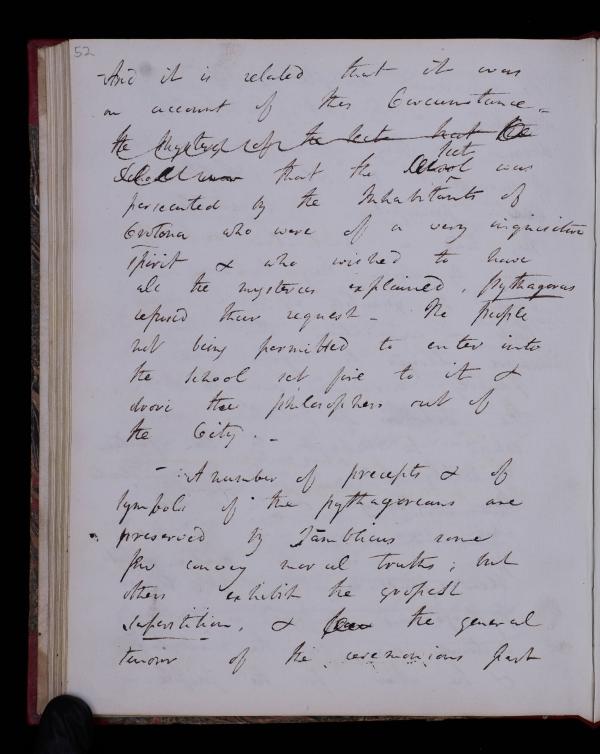 52
- And it is related that it was
on account of this Circumstance -
the the
that the sect was
persecuted by the Inhabitants of
Crotona who were of a very inquisitive
spirit & who wished to have
all the mysteries explained. Pythagoras
refused their request - The people
not being permitted to enter into
the School set fire to it &
drove the philosophers out of
the City. -
- A number of precepts & of
symbols of the pythagoreans are
preserved by Iamblicus some
few convey moral truths; but
others exhibit the grossest
superstition, & the general
tenour of the ceremonious part